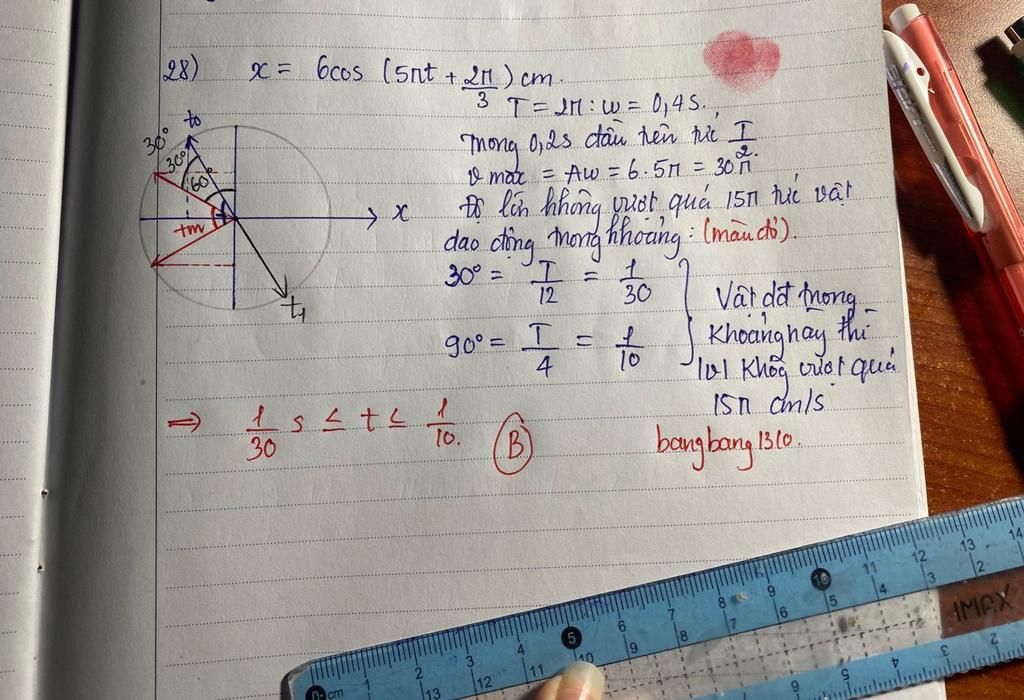 28) x = 6cos (5πt + 2π/3) cm.
T = 2π : w = 0,4s.
trong 0,2s đầu tiên tức T/2.
vmax = Aw = 6.5π = 30π
Độ lớn không vượt quá 15π tức vật
dao động trong khoảng: (màu đỏ).
30° = T/12 = 1/30
90° = T/4 = 1/10
Vật dđ trong
khoảng nay thì
|v| Khôg vượt quá
15π cm/s
⇒ 1/30 s ≤ t ≤ 1/10. B
bangbang1310.
30°
t0
30°
60
tm
x
t1
0-cm 1 2 3 4 5 6 7 8 9 10 11 12 13 14
13 12 11 10 9 8 7 6 5 4 3 2
IMAX
5 4 3 2